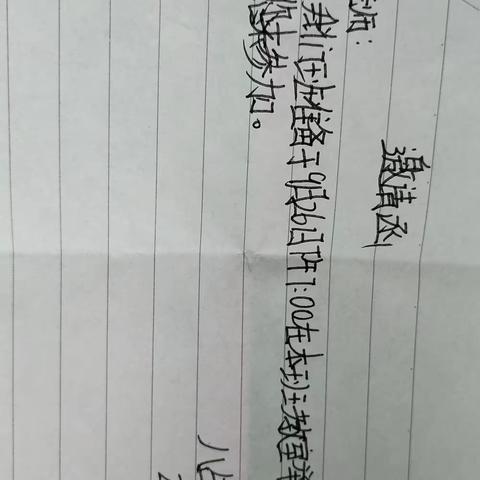 邀请函
师:
我们班准备于9月26日下午1:00在本班教室举
你来参加。
八